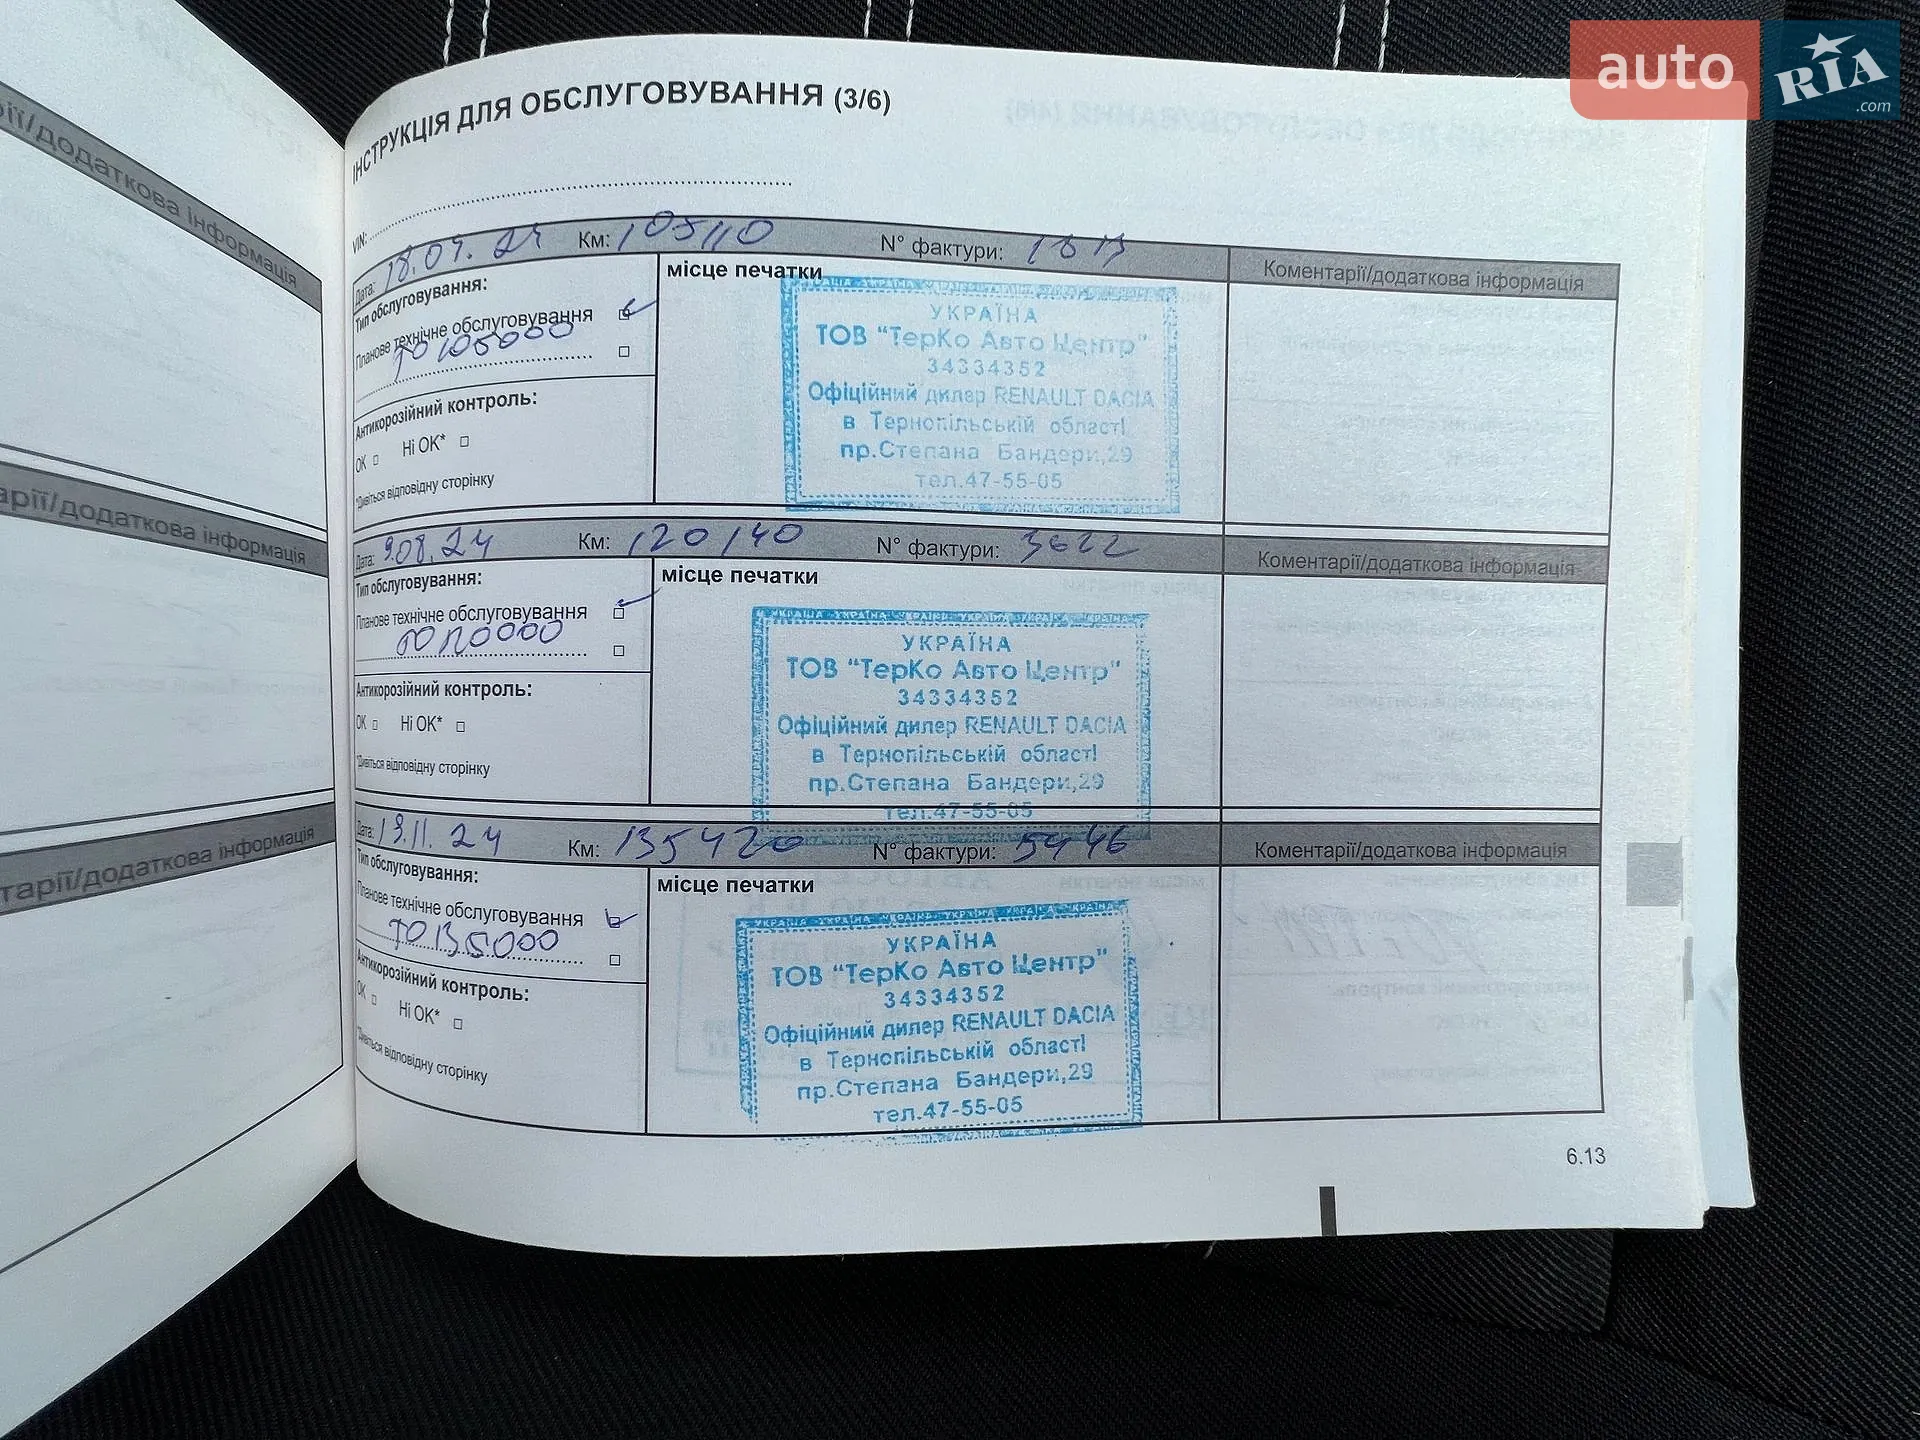 auto RIA .com
ІНСТРУКЦІЯ ДЛЯ ОБСЛУГОВУВАННЯ (3/6)
VIN:
Дата: 18.04.24 Км: 105110 N° фактури:
Коментарі/додаткова інформація
Тип обслуговування:
Планове технічне обслуговування
ТО 105000
Антикорозійний контроль:
OK Ні OK*
*Дивіться відповідну сторінку
місце печатки
УКРАЇНА
ТОВ "ТерКо Авто Центр"
34334352
Офіційний дилер RENAULT DACIA
в Тернопільській області
пр.Степана Бандери,29
тел.47-55-05
Дата: 9.08.24 Км: 120140 N° фактури: 3622
Коментарі/додаткова інформація
Тип обслуговування:
Планове технічне обслуговування
ТО 120000
Антикорозійний контроль:
OK Ні OK*
*Дивіться відповідну сторінку
місце печатки
УКРАЇНА
ТОВ "ТерКо Авто Центр"
34334352
Офіційний дилер RENAULT DACIA
в Тернопільській області
пр.Степана Бандери,29
тел.47-55-05
Дата: 13.11.24 Км: 135420 N° фактури: 5446
Коментарі/додаткова інформація
Тип обслуговування:
Планове технічне обслуговування
ТО 135000
Антикорозійний контроль:
OK Ні OK*
*Дивіться відповідну сторінку
місце печатки
УКРАЇНА
ТОВ "ТерКо Авто Центр"
34334352
Офіційний дилер RENAULT DACIA
в Тернопільській області
пр.Степана Бандери,29
тел.47-55-05
6.13
рії/додаткова інформація
арії/додаткова інформація
тарії/додаткова інформація